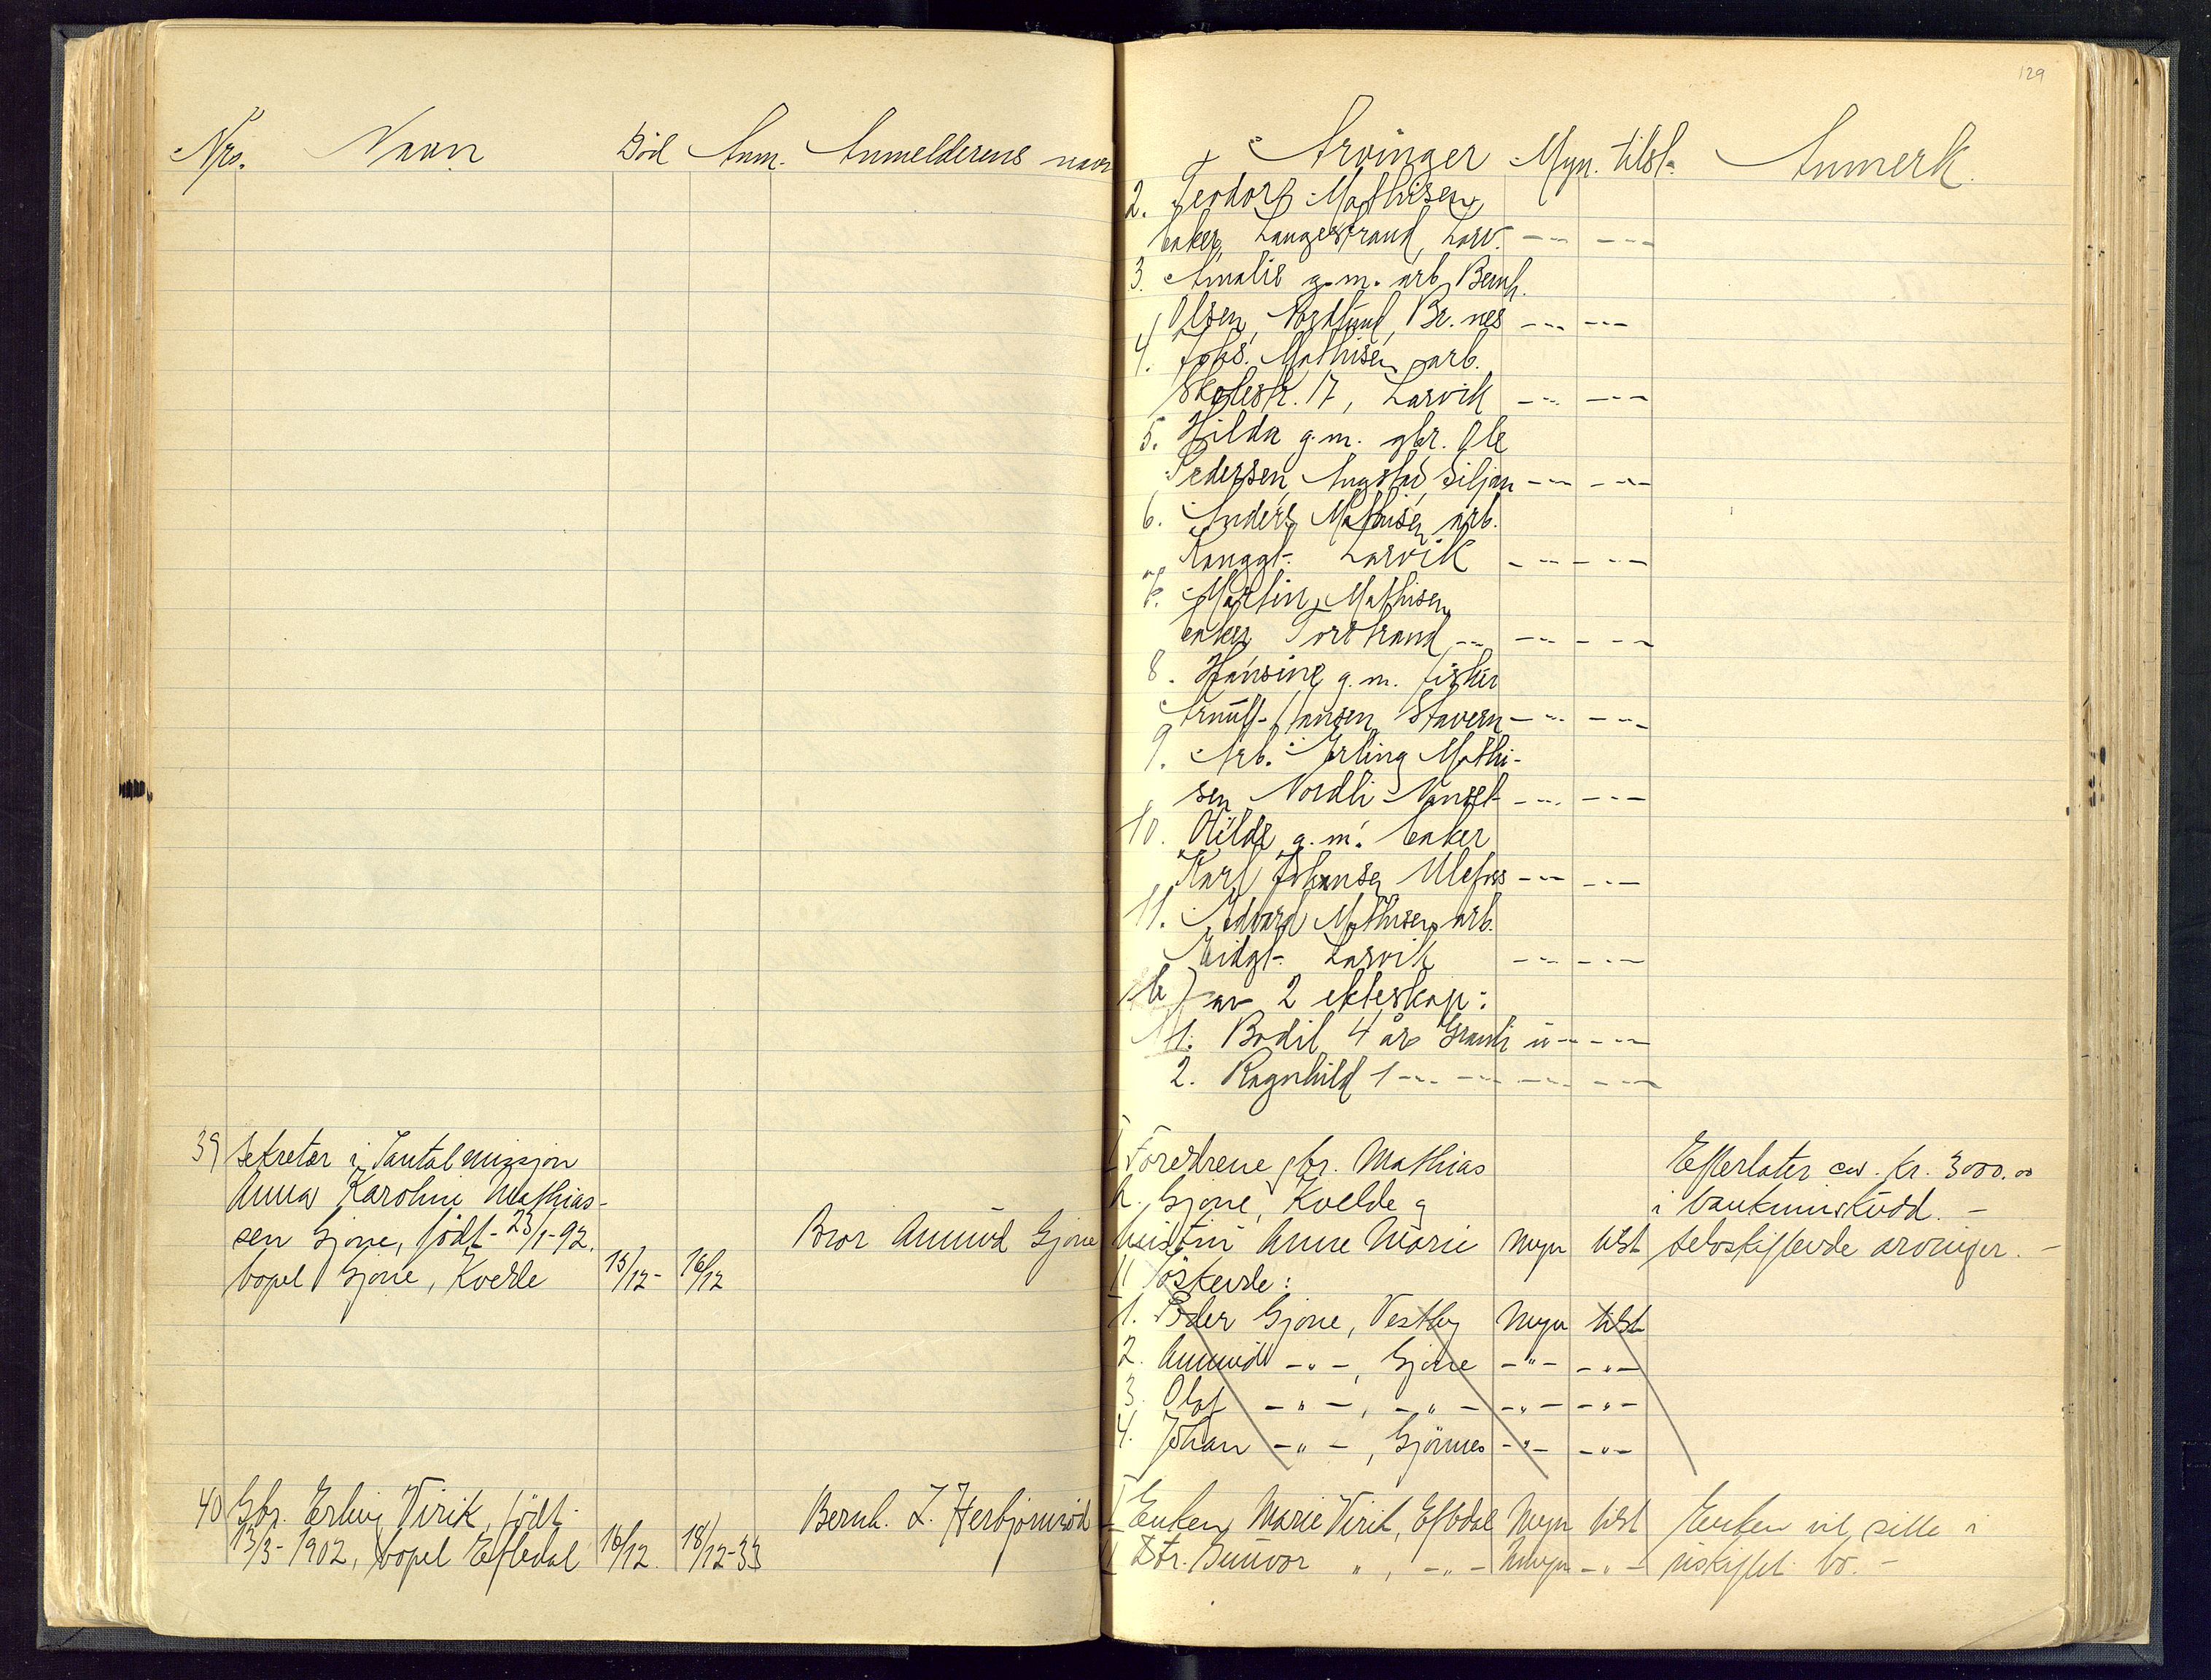 129
Nro. Navn Död Anm. Anmelderens navn
Arvinger Myn. tilst. Anmerk.
2. Teodor Mathisen
baker, Langestrand, Larv. -"- -"-
3. Amalie g.m. arb. Bernh.
Olsen, Nordlund, Br.nes -"- -"-
4. Johs. Mathisen arb.
Skolestr. 17, Larvik -"- -"-
5. Hilda g.m. gbr. Ole
Pedersen Angstad, Siljan -"- -"-
6. Anders Mathisen arb.
Larvik -"- -"-
7. Martin Mathisen
baker, Torstrand -"- -"- -"-
8. Hansine g.m. fisker
Arnulf Hansen Stavern -"- -"-
9. Arb. Erling Mathi-
sen Nordli -"- -"-
10. Olilde g.m. baker
Karl Johansen Ulefoss -"- -"-
11. Edvard Mathisen arb.
Larvik -"- -"-
b) av 2 ekteskap:
1. Bodil 4 år u -"- -"-
2. Ragnhild 1 -"- -"- -"- -"-
39 Sekretær i Santalmissjon
Anna Karoline Mathias-
sen Gjone, födt 23/1-92.
bopel Gjone, Kvelde 15/12- 16/12
Bror Amund Gjone
I Foreldrene gbr. Mathias
A. Gjone, Kvelde og
hustru Anne Marie Myn tilst
Efterlater ca. kr. 3000.00
i bankinnskudd. -
Selvskiftende arvinger. -
II Söskende:
1. Peder Gjone, Vestby Myn tilst
2. Amund -"-, Gjone -"- -"-
3. Olaf -"-, -"- -"- -"-
4. Johan -"-, Gjönnes -"- -"-
40 Gbr. Erling Virik, födt
13/3-1902, bopel Eftedal 16/12. 18/12-33
Bernh. L. Herbjörnröd
I Enken Marie Virik, Eftedal Myn tilst Enken vil sitte i
II Dtr. Gunvor ", -"- Umyn -"- uskiftet bo. -